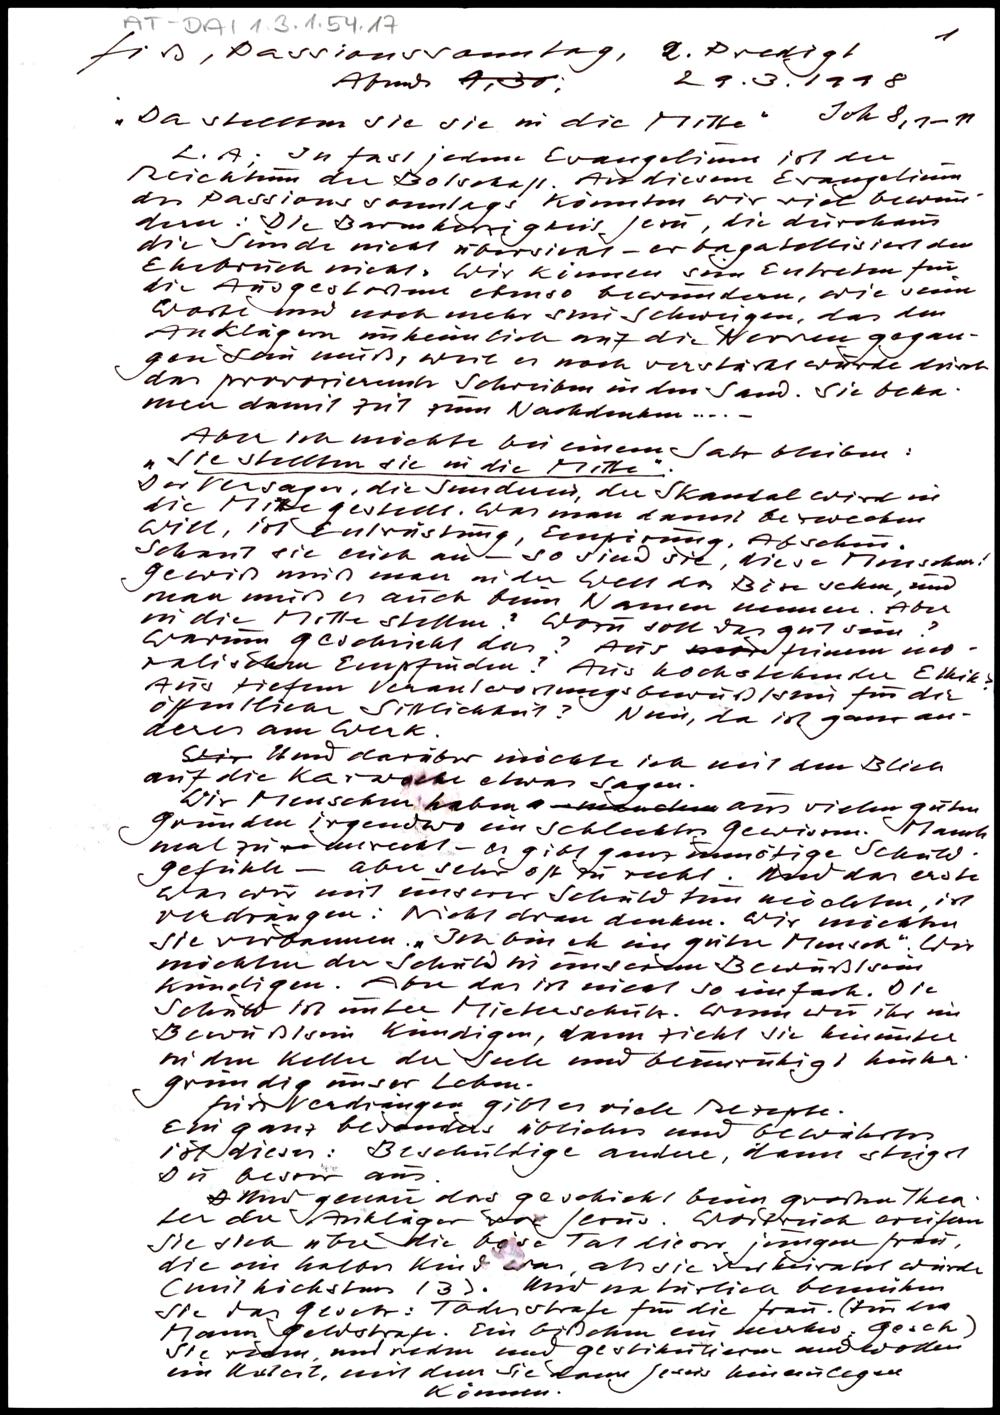 AT-DAI 1.3.1.54.17
1
Fiß, Passionssonntag, 2. Predigt
Abends 9,30; 29.3.1998
"Da stellten sie sie in die Mitte" Joh 8,1-11
L. A; In fast jedem Evangelium ist der
Reichtum der Botschaft. An diesem Evangelium
des Passionssonntags könnten wir viel bewun-
dern: Die Barmherzigkeit Jesu, die durchaus
die Sünde nicht übersieht - er bagatellisiert den
Ehebruch nicht. Wir können sein Eintreten für
die Ausgestoßene ebenso bewundern, wie seine
Worte und noch mehr sein Schweigen, das den
Anklägern unheimlich auf die Nerven gegan-
gen sein muß, weil es noch verstärkt wurde durch
das provozierende Schreiben in den Sand. Sie beka-
men damit Zeit zum Nachdenken.... -
Aber ich möchte bei einem Satz bleiben:
"Sie stellten sie in die Mitte".
Der Versager, die Sünderin, der Skandal wird in
die Mitte gestellt. Was man damit bezwecken
will, ist Entrüstung, Empörung, Abscheu.
Schaut sie euch an - so sind sie, diese Menschen!
Gewiß muß man in der Welt das Böse sehen, und
man muß es auch beim Namen nennen. Aber
in die Mitte stellen? Wozu soll das gut sein?
Warum geschieht das? Aus feinem mo-
ralischem Empfinden? Aus hochstehender Ethik?
Aus tiefem Verantwortungsbewußtsein für die
öffentliche Sittlichkeit? Nein, da ist ganz an-
deres am Werk.
Und darüber möchte ich mit dem Blick
auf die Karwoche etwas sagen.
Wir Menschen haben aus vielen guten
Gründen irgendwo ein schlechtes Gewissen. Manch-
mal zu unrecht - es gibt ganz unnötige Schuld-
gefühle - aber sehr oft zu recht. Und das erste
was wir mit unserer Schuld tun möchten, ist
verdrängen: Nicht dran denken. Wir möchten
sie verbannen. "Ich bin eh ein guter Mensch". Wir
möchten der Schuld in unserem Bewußtsein
kündigen. Aber das ist nicht so einfach. Die
Schuld ist unter Mieterschutz. Wenn wir ihr im
Bewußtsein kündigen, dann zieht sie hinunter
in den Keller der Seele und beunruhigt hinter-
gründig unser Leben.
Fürs Verdrängen gibt es viele Rezepte.
Ein ganz besonders übliches und bewährtes
ist dieses: Beschuldige andere, dann steigst
Du besser aus.
Und genau das geschieht beim großen Thea-
ter der Ankläger vor Jesus. Wortreich ereifern
sie sich über die böse Tat dieser jungen Frau,
die ein halbes Kind war, als sie verheiratet wurde
(mit höchstens 13). Und natürlich bemühen
sie das Gesetz: Todesstrafe für die Frau. (Für den
Mann Geldstrafe. Ein bißchen ein Gesetz)
Sie reden und gestikulieren und wollen
ein Urteil, mit dem sie dann Jesus hineinlegen
können.